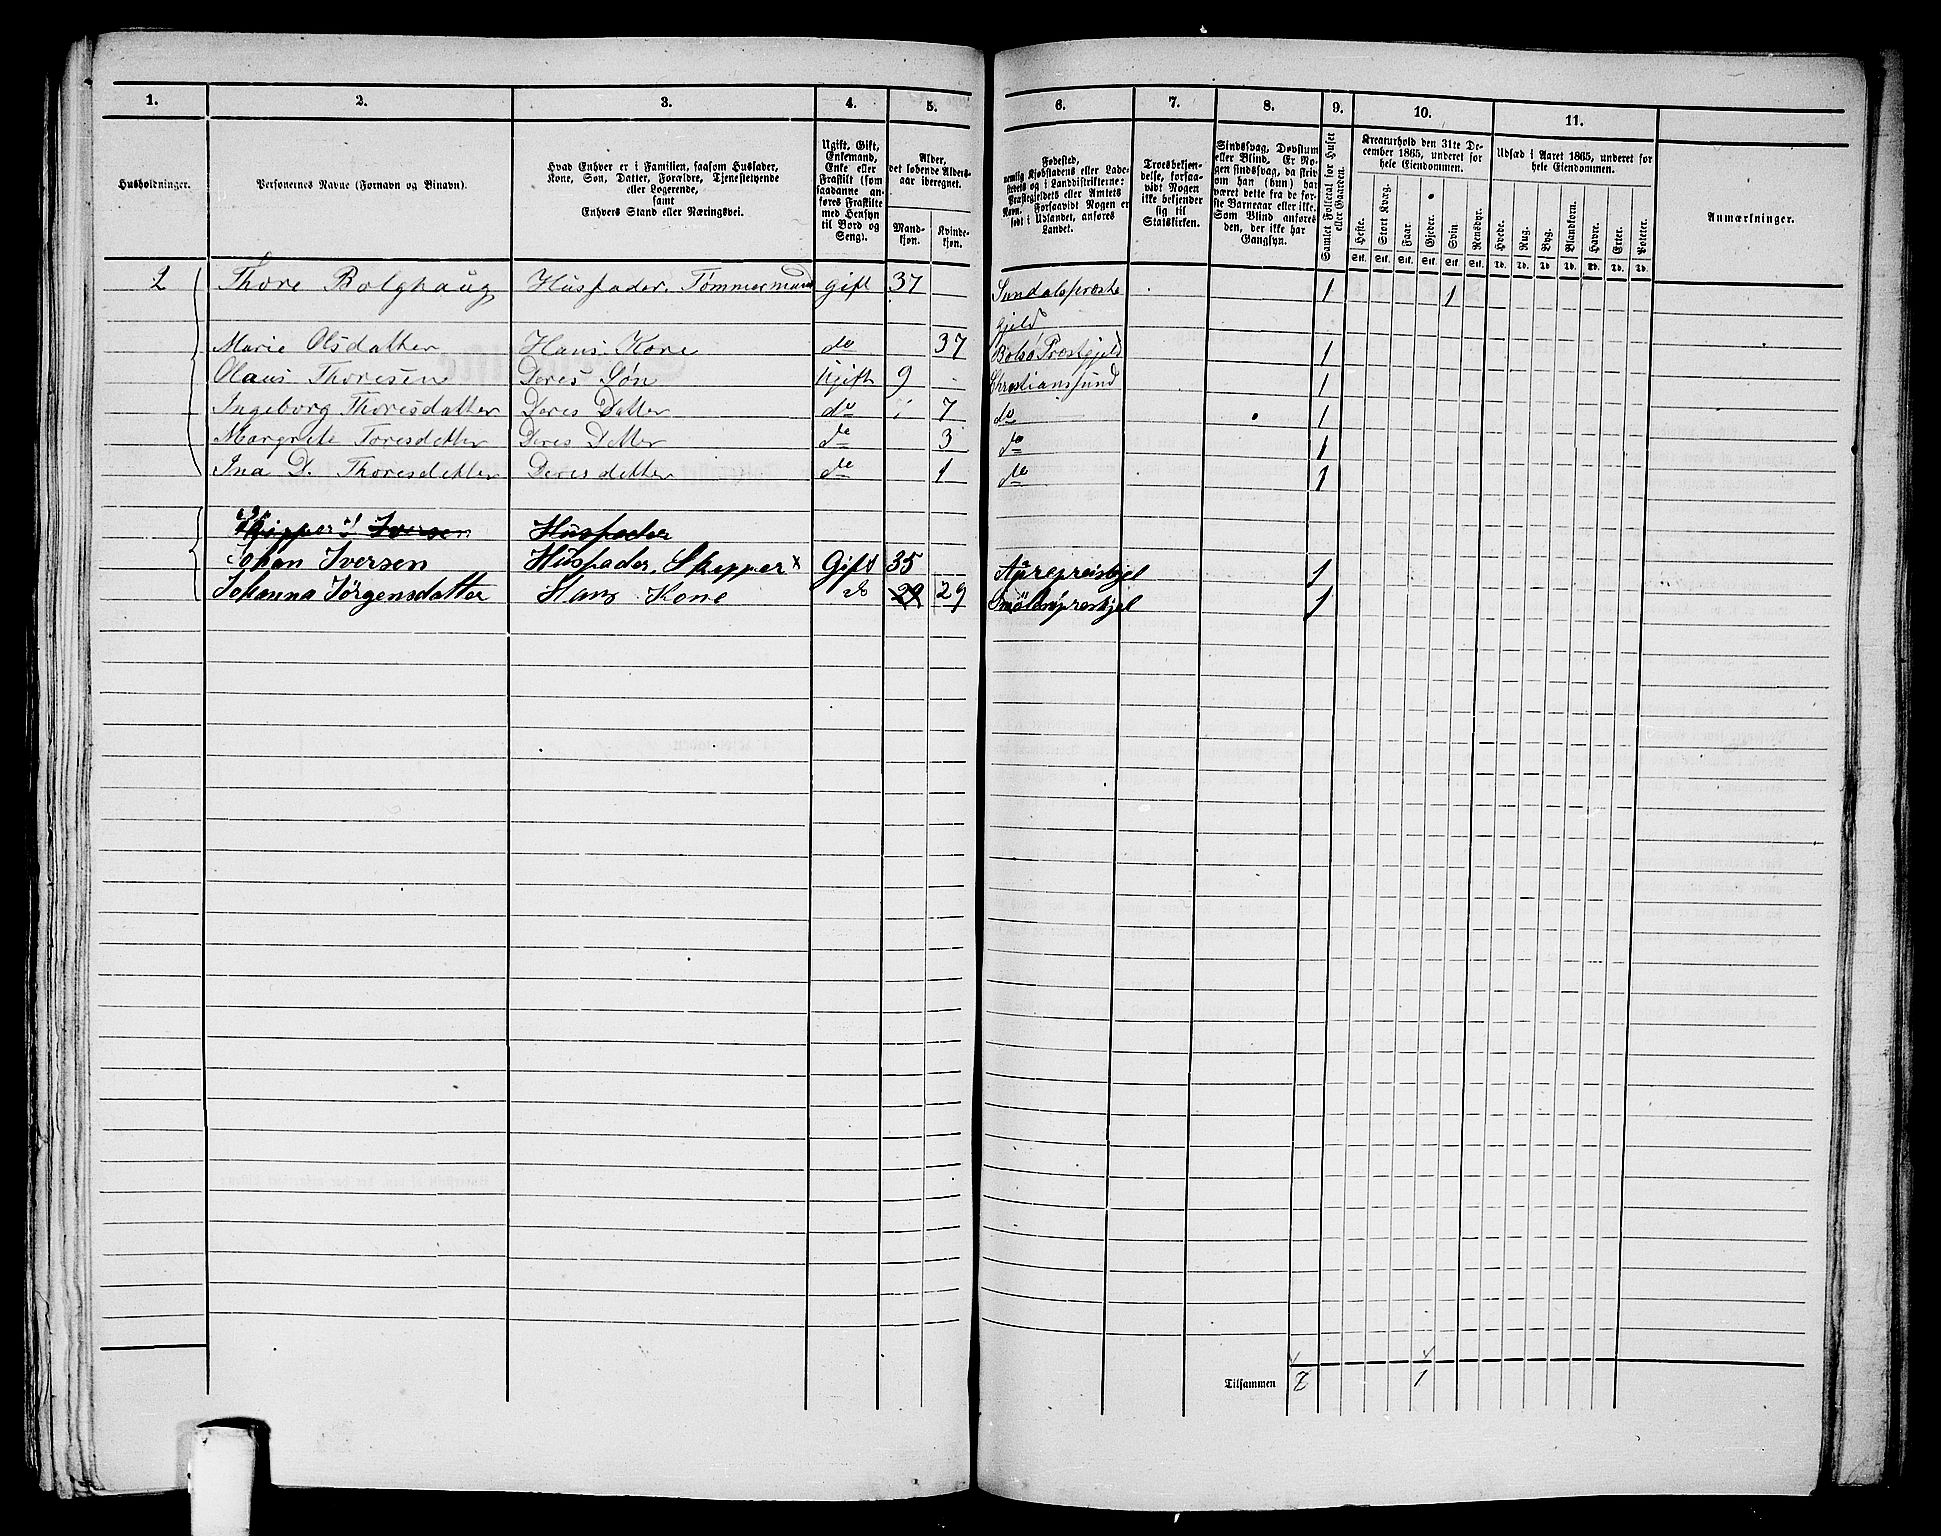 1. 2. 3. 4. 5. 6. 7. 8. 9. 10. 11.
Husholdninger.
Personernes Navne (Fornavn og Binavn).
Hvad Enhver er i Familien, saasom Husfader,
Kone, Søn, Datter, Forældre, Tjenestetyende
eller Logerende,
samt
Enhvers Stand eller Næringsvei.
Ugift, Gift,
Enkemand,
Enke eller
Fraskilt (som
saadanne an-
føres Fraskilte
med Hensyn
til Bord og
Seng).
Alder,
det løbende Alders-
aar iberegnet.
Mand-
kjøn.
Kvinde-
kjøn.
Fødested,
nemlig Kjøbstadens eller Lade-
stedets og i Landdistrikterne:
Præstegjeldets eller Amtets
Navn. Forsaavidt Nogen er
født i Udlandet, anføres
Landet.
Troesbekjen-
delse, forsaa-
vidt Nogen
ikke bekjender
sig til
Statskirken.
Sindssvag, Døvstum
eller Blind. Er No-
gen sindssvag, da skriv
om han (hun) har
været dette fra de før-
ste Barneaar eller ikke.
Som Blind anføres
den, der ikke har
Gangsyn.
Samlet Folketal for Huset
eller Gaarden.
Kreaturhold den 31te De-
cember 1865, underet for
hele Eiendommen.
Heste. Stort Kvæg. Faar. Gjeder. Svin. Rensdyr.
Stk. Stk. Stk. Stk. Stk. Stk.
Udsæd i Aaret 1865, underet for
hele Eiendommen.
Hvede. Rug. Byg. Blandkorn. Havre. Erter. Poteter.
Td. Td. Td. Td. Td. Td. Td.
Anmærkninger.
2 Thore Bolghaug Husfader. Tømmermand gift 37 Sundalspræste 1 1
gjeld
Marie Olsdatter Hans Kone do 37 Bolsø Prestgjeld 1
Olaus Thoresen Deres Søn Ugift 9 Christiansund 1
Ingeborg Thoresdatter Deres Datter do 7 do 1
Margrete Toresdatter Deres Datter do 3 do 1
Ina D. Thoresdatter Deres datter do 1 do 1
Skipper Iversen Husfader
Johan Iversen Husfader, Skipper x Gift 35 Aurepreiskjel 1
Johanna Jørgensdatter Hans Kone do 29 29 Smölenpreskjel 1
Tilsammen 7 1